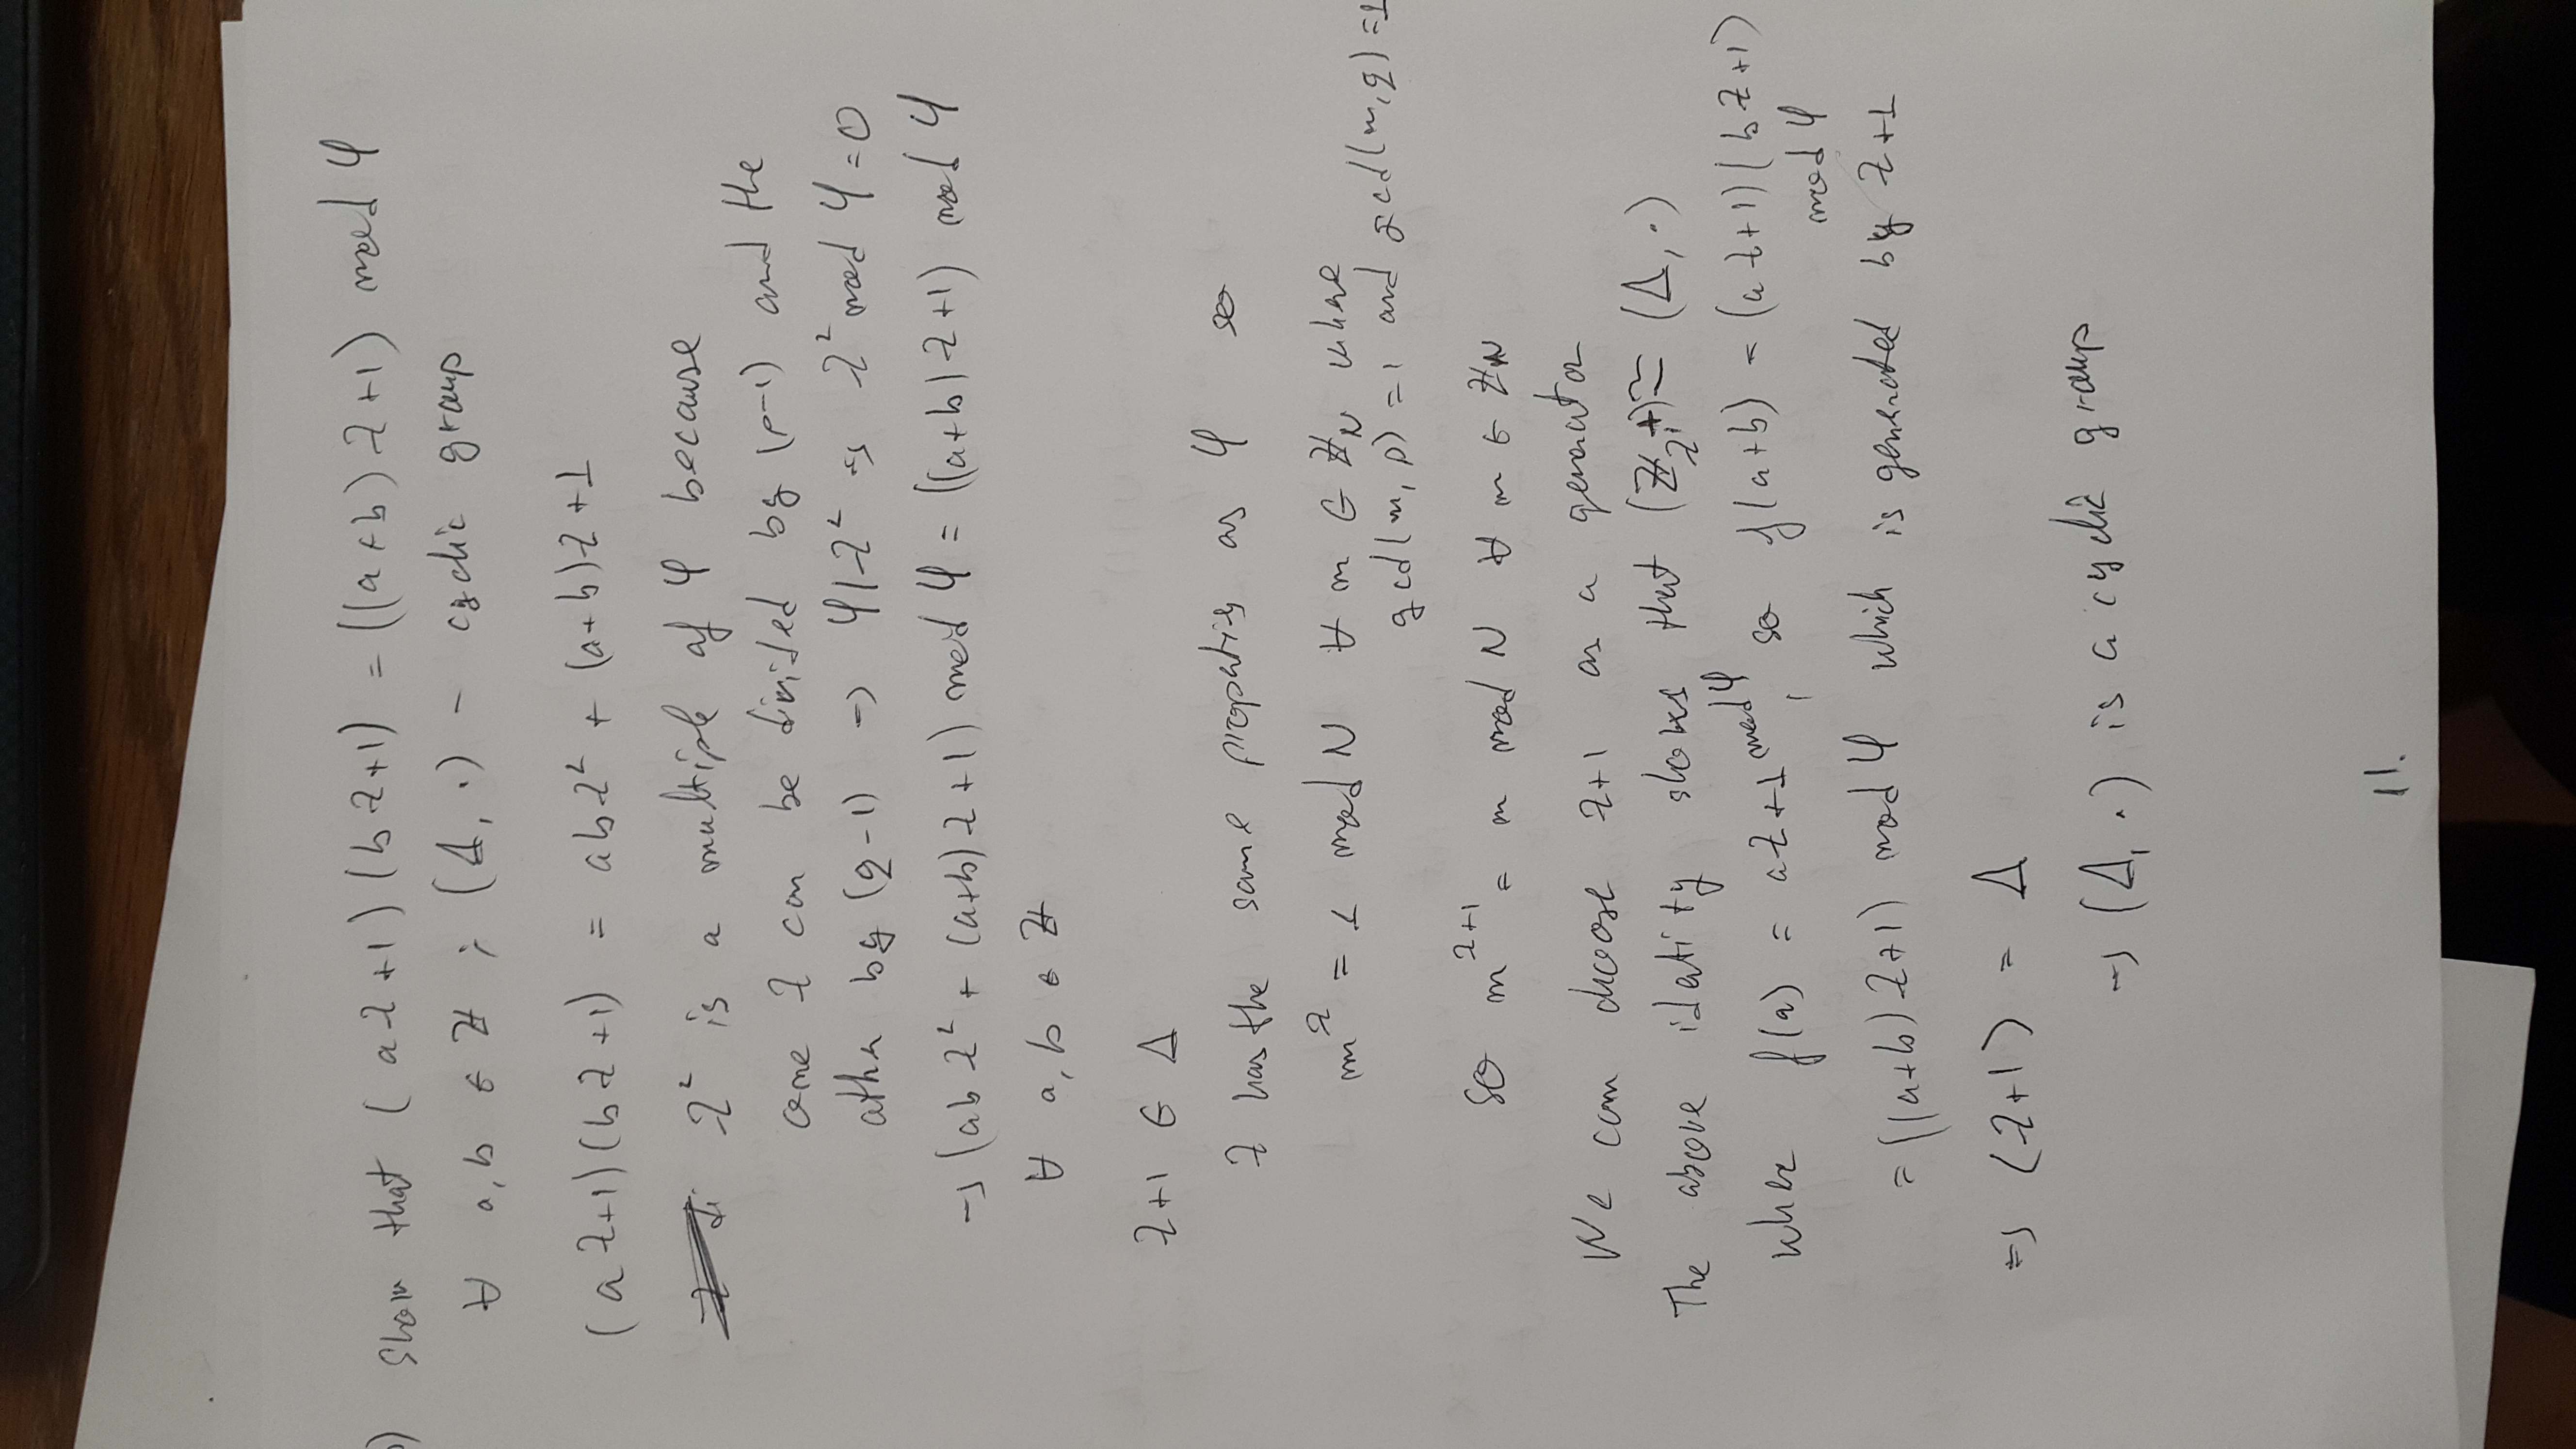 ) Show that (aλ+1)(bλ+1) = ((a+b)λ+1) mod φ
∀ a,b ∈ ℤ ; (Δ, ·) - cyclic group
(aλ+1)(bλ+1) = abλ² + (a+b)λ+1
λ² is a multiple of φ because
one λ can be divided by (p-1) and the
other by (q-1) → φ|λ² → λ² mod φ = 0
→ (abλ² + (a+b)λ+1) mod φ = ((a+b)λ+1) mod φ
∀ a,b ∈ ℤ
λ+1 ∈ Δ
λ has the same properties as φ so
m^λ = 1 mod N ∀ m ∈ ℤ_N where
gcd(m,p)=1 and gcd(m,q)=1
so m^(λ+1) = m mod N ∀ m ∈ ℤ_N
We can choose λ+1 as a generator
The above identity shows that (ℤ_λ,+) ≃ (Δ, ·)
where f(a) = aλ+1 mod φ, so f(a+b) = (aλ+1)(bλ+1)
mod φ
= ((a+b)λ+1) mod φ which is generated by λ+1
⇒ ⟨λ+1⟩ = Δ
→ (Δ, ·) is a cyclic group
11.